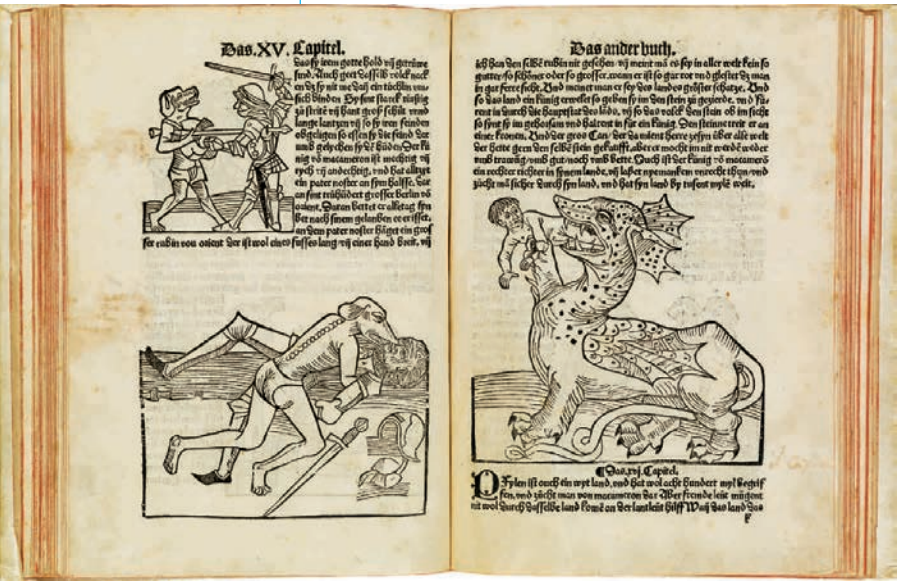 Das.XV. Capitel.
das sy irem gotte hold vn̄ getrüwe
sind. Auch geet dasselb volck nack
en dz sy nit me dan̄ ein tüchlin vm
sich binden Sy sint starck
zů strite vn̄ hant groß schilt vnnd
lange lantzen vn̄ so sy iren feinden
obgeligen so essen sy die feind Der
künig vō macameron ist mechtig vn̄
rych vn̄ andechtig. vnd hat alltzyt
ein pater noster an sym halsse. dar
an sint trühūdert grosser berlin vō
orient. Daran bettet er alletag syn
bet nach sinem gelauben ee er isset.
an dem pater noster hāget ein grof
ser rubin von orient der ist wol eines fusses lang vn̄ einer hand breit. vn̄
Das ander buch.
ich han den selbē rubin nit gesehen. vn̄ meint mā es sey in aller welt kein so
gutter so schöner oder so grosser. wann er ist so gar rot vnd glestet dz man
in gar ferre sicht. Vnd meinet man er sey des landes gröster schatze. Vnd
so das land ein künig erwelet so geben sy im den stein zů gezierde. vnd fü
rent in durch die hauptstat des lāds. vn̄ so das volck den stein ob im sicht
so synt sy im gehorsam vnd haltent in für ein künig. Den steinne treit er an
einer kronen. Vnd der gros Can der da meint herre zesyn über alle welt
der hette gern den selbē stein gekaufft. aber er mocht im nit werdē weder
vmb trawūg vmb gut noch vmb bette. Ouch ist der künig vō macamerō
ein rechter richter in synem lande. vn̄ lasset nyemanken vnrecht thyn vnd
zücht mā sicher durch syn land. vnd hat syn land by tusent mylē weit.
¶Das.xvj. Capitel.
Sylen ist ouch ein wyt land. vnd hat wol acht hundert myl begrif
fen. vnd zücht man von macameron dar Aber fremde leüt mügent
nit wol durch dasselbe land komē on der lantleüt hilff Wan̄ das land das